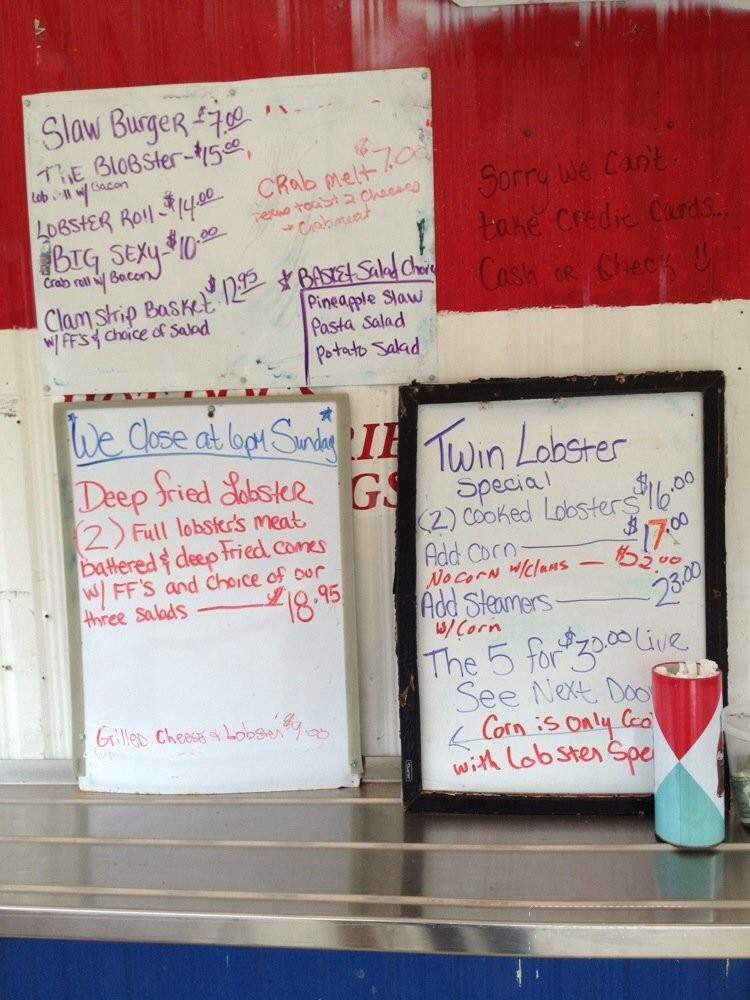 Slaw Burger - $7.00
THE BLOBSter - $15.00
w/ Bacon
LOBSTER Roll - $14.00
BIG SEXy - $10.00
Crab roll w/ Bacon
Clam Strip Basket $12.95
w/ FF's & Choice of Salad
CRab Melt $7.00
2 Cheeses
+ Crabmeat
* BASket Salad Choice
Pineapple Slaw
Pasta Salad
Potato Salad
Sorry We Can't
take Credit Cards...
Cash or Check
We Close at 6pm Sunday
Deep fried Lobster
(2) Full lobster's meat
battered & deep fried. comes
w/ FF's and choice of our
three salads $18.95
Grilled Cheese & Lobster $9.00
Twin Lobster
Special
(2) Cooked Lobsters $16.00
Add Corn $17.00
No CoRN w/clams - $22.00
Add Steamers 23.00
w/ Corn
The 5 for $30.00 Live
See Next Doo
Corn is only Coo
with Lobster Spe